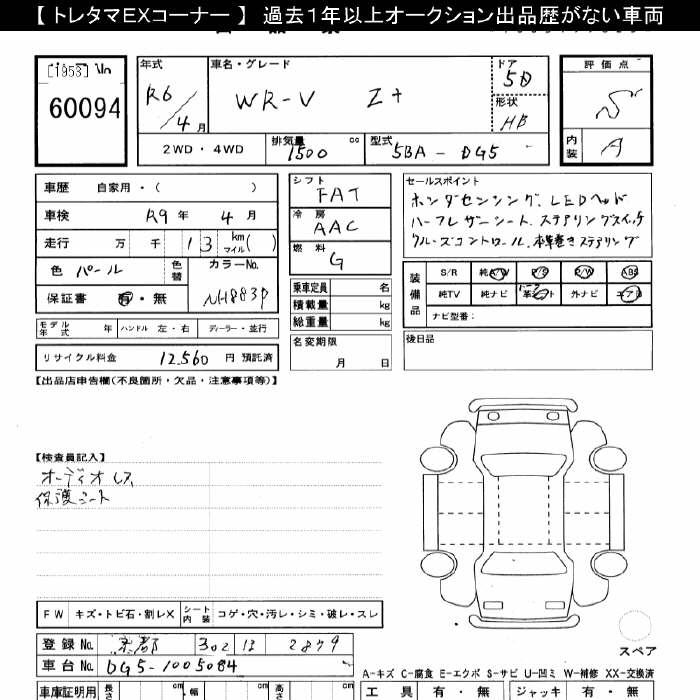 【 トレタマEXコーナー 】 過去1年以上オークション出品歴がない車両
60094
年式
R6/4月
車名・グレード
WR-V Z+
ドア
5D
形状
HB
評価点
S
内装
A
2WD・4WD
排気量
1500 cc
型式
5BA - DG5
車歴 自家用・( )
車検 R9年 4月
走行 万 千 13 km マイル( )
色 パール
色替
カラーNo.
NH883P
保証書 有・無
モデル年式 年 ハンドル 左・右 ディーラー・並行
リサイクル料金 12,560 円 預託済
シフト
FAT
冷房
AAC
燃料
G
乗車定員 名
積載量 kg
総重量 kg
名変期限
月 日
セールスポイント
ホンダセンシング、LEDヘッド
ハーフレザーシート、ステアリングスイッチ
クルーズコントロール、本革巻きステアリング
装備品
S/R 純A/W P/S P/W ABS
純TV 純ナビ 革シート 外ナビ エアB
ナビ型番:
後日品
【出品店申告欄(不良箇所・欠品・注意事項等)】
【検査員記入】
オーディオレス
保護シート
FW キズ・トビ石・割レX シート内装 コゲ・穴・汚レ・シミ・破レ・スレ
スペア
登録No. 京都 302 ほ 2879
車台No. DG5-1005084
A-キズ C-腐食 E-エクボ S-サビ U-凹ミ W-補修 XX-交換済
車庫証明用 長さ cm 幅 cm 高さ cm
工具 有・無 ジャッキ 有・無